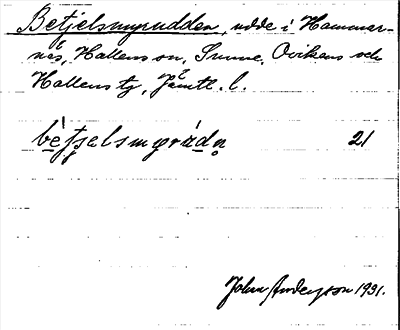 Betjelsmyrudden, udde i Hammar-
näs, Hallens sn, Sunne, Ovikens och
Hallens tg, Jämtl. l.
be̍tʃelsmyrùdn̥ 21
John Anderzson 1931.